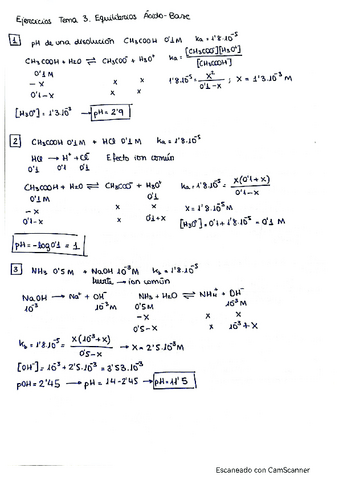 Ejercicios Tema 3. Equilibrios Ácido-Base
1 pH de una disolución CH₃COOH 0'1 M ka = 1'8·10⁻⁵
CH₃COOH + H₂O ⇌ CH₃COO⁻ + H₃O⁺ ka = [CH₃COO⁻][H₃O⁺] / [CH₃COOH]
0'1 M
-x x x 1'8·10⁻⁵ = x² / 0'1-x ; x = 1'3·10⁻³ M
0'1-x x x
[H₃O⁺] = 1'3·10⁻³ → pH = 2'9
2 CH₃COOH 0'1 M + HCl 0'1 M ka = 1'8·10⁻⁵
HCl → H⁺ + Cl⁻ Efecto ion común
0'1 0'1 0'1
CH₃COOH + H₂O ⇌ CH₃COO⁻ + H₃O⁺ ka = 1'8·10⁻⁵ = x(0'1+x) / 0'1-x
0'1 M 0'1
-x x x x = 1'8·10⁻⁵ M
0'1-x x 0'1+x [H₃O⁺] = 0'1 + 1'8·10⁻⁵ = 0'1 M
pH = -log 0'1 = 1
3 NH₃ 0'5 M + NaOH 10⁻³ M kb = 1'8·10⁻⁵
fuerte → ion común
NaOH → Na⁺ + OH⁻ NH₃ + H₂O ⇌ NH₄⁺ + OH⁻
10⁻³ 10⁻³ M 0'5 M 10⁻³ M
-x x x
0'5-x x 10⁻³+x
kb = 1'8·10⁻⁵ = x(10⁻³+x) / 0'5-x → x = 2'5·10⁻³ M
[OH⁻] = 10⁻³ + 2'5·10⁻³ = 3'53·10⁻³
pOH = 2'45 → pH = 14-2'45 → pH = 11'5
Escaneado con CamScanner